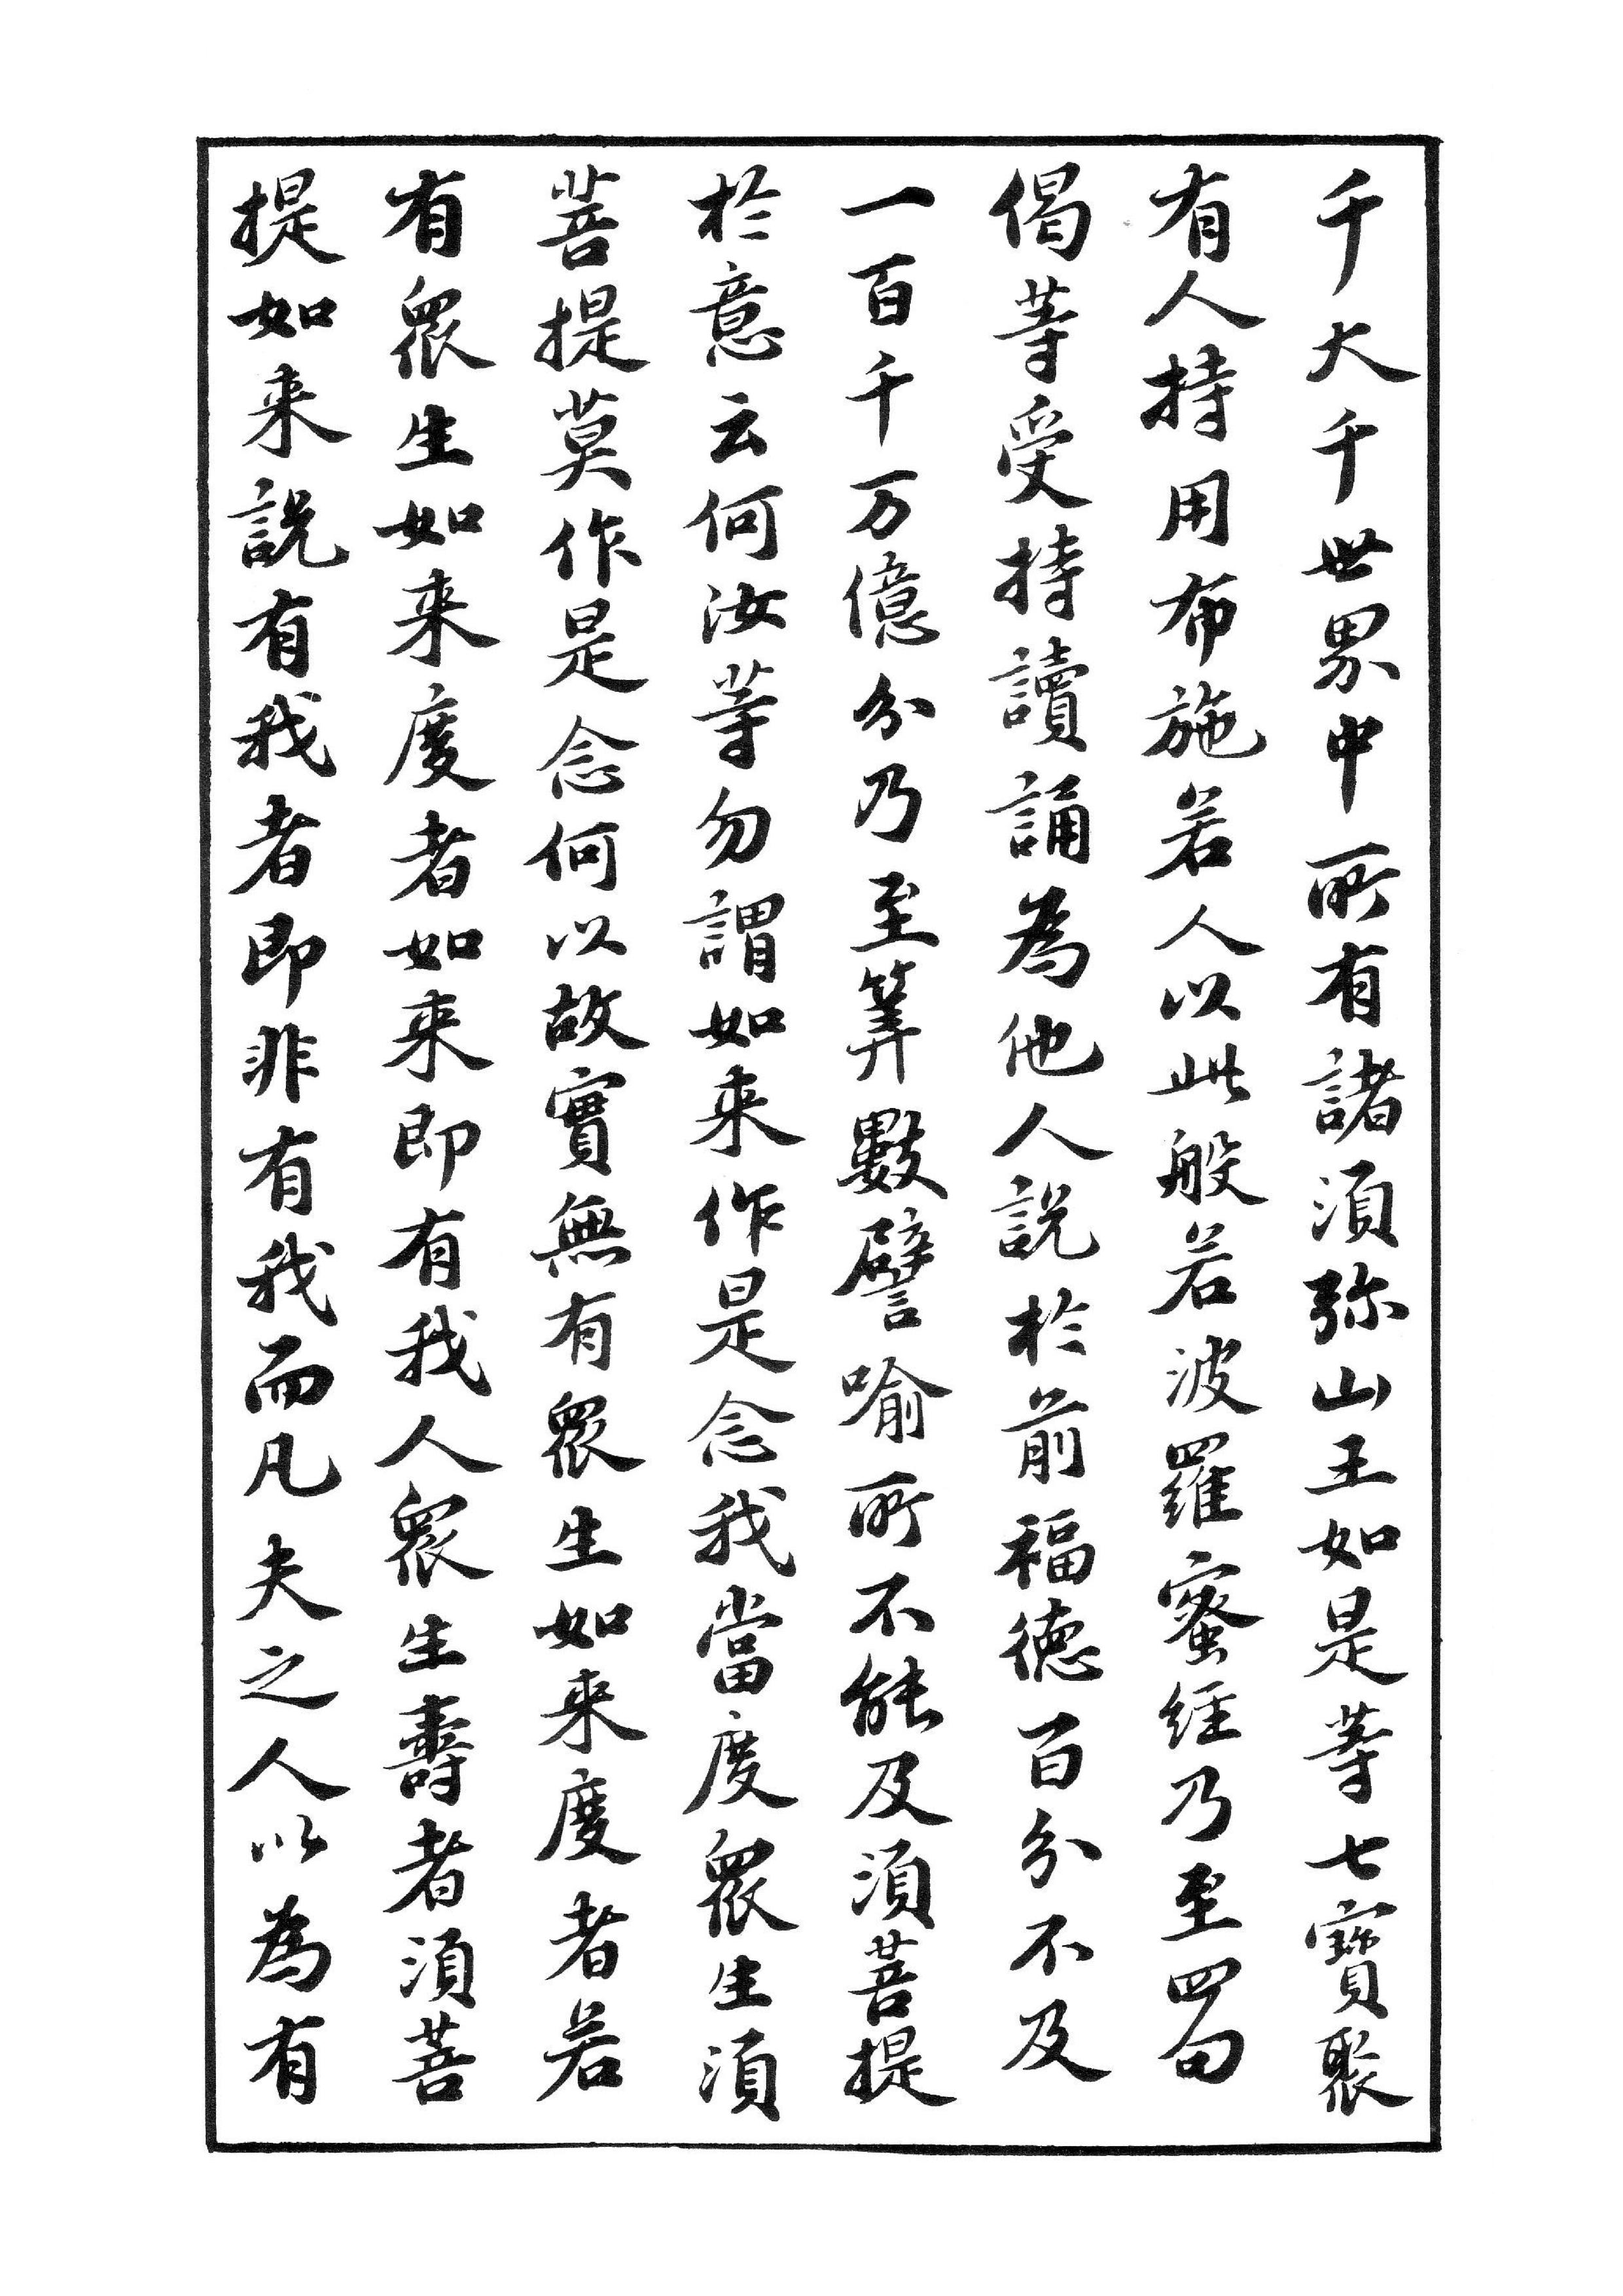 千大千世界中所有諸須弥山王如是等七寶聚
有人持用布施若人以此般若波羅蜜經乃至四句
偈等受持讀誦為他人説於前福德百分不及
一百千万億分乃至筭數譬喻所不能及須菩提
於意云何汝等勿謂如来作是念我當度眾生須
菩提莫作是念何以故實無有眾生如来度者若
有眾生如来度者如来即有我人眾生壽者須菩
提如来説有我者即非有我而凡夫之人以為有